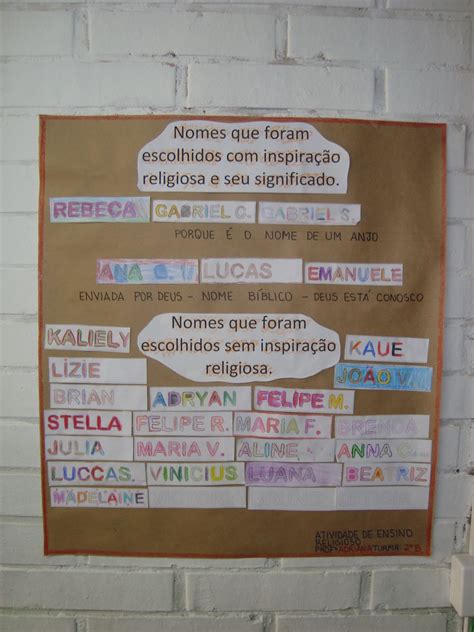 Nomes que foram
escolhidos com inspiração
religiosa e seu significado.
REBECA GABRIEL C. GABRIEL S.
PORQUE É O NOME DE UM ANJO
ANA LUCAS EMANUELE
ENVIADA POR DEUS - NOME BÍBLICO - DEUS ESTÁ CONOSCO
Nomes que foram
escolhidos sem inspiração
religiosa.
KALIELY KAUE
LÍZIE JOÃO V.
BRIAN ADRYAN FELIPE M.
STELLA FELIPE R. MARIA F. BRENDA
JULIA MARIA V. ALINE ANNA C.
LUCCAS. VINICIUS LUANA BEATRIZ
MADELAINE
ATIVIDADE DE ENSINO
RELIGIOSO
ADRIANA TURMA 2º B